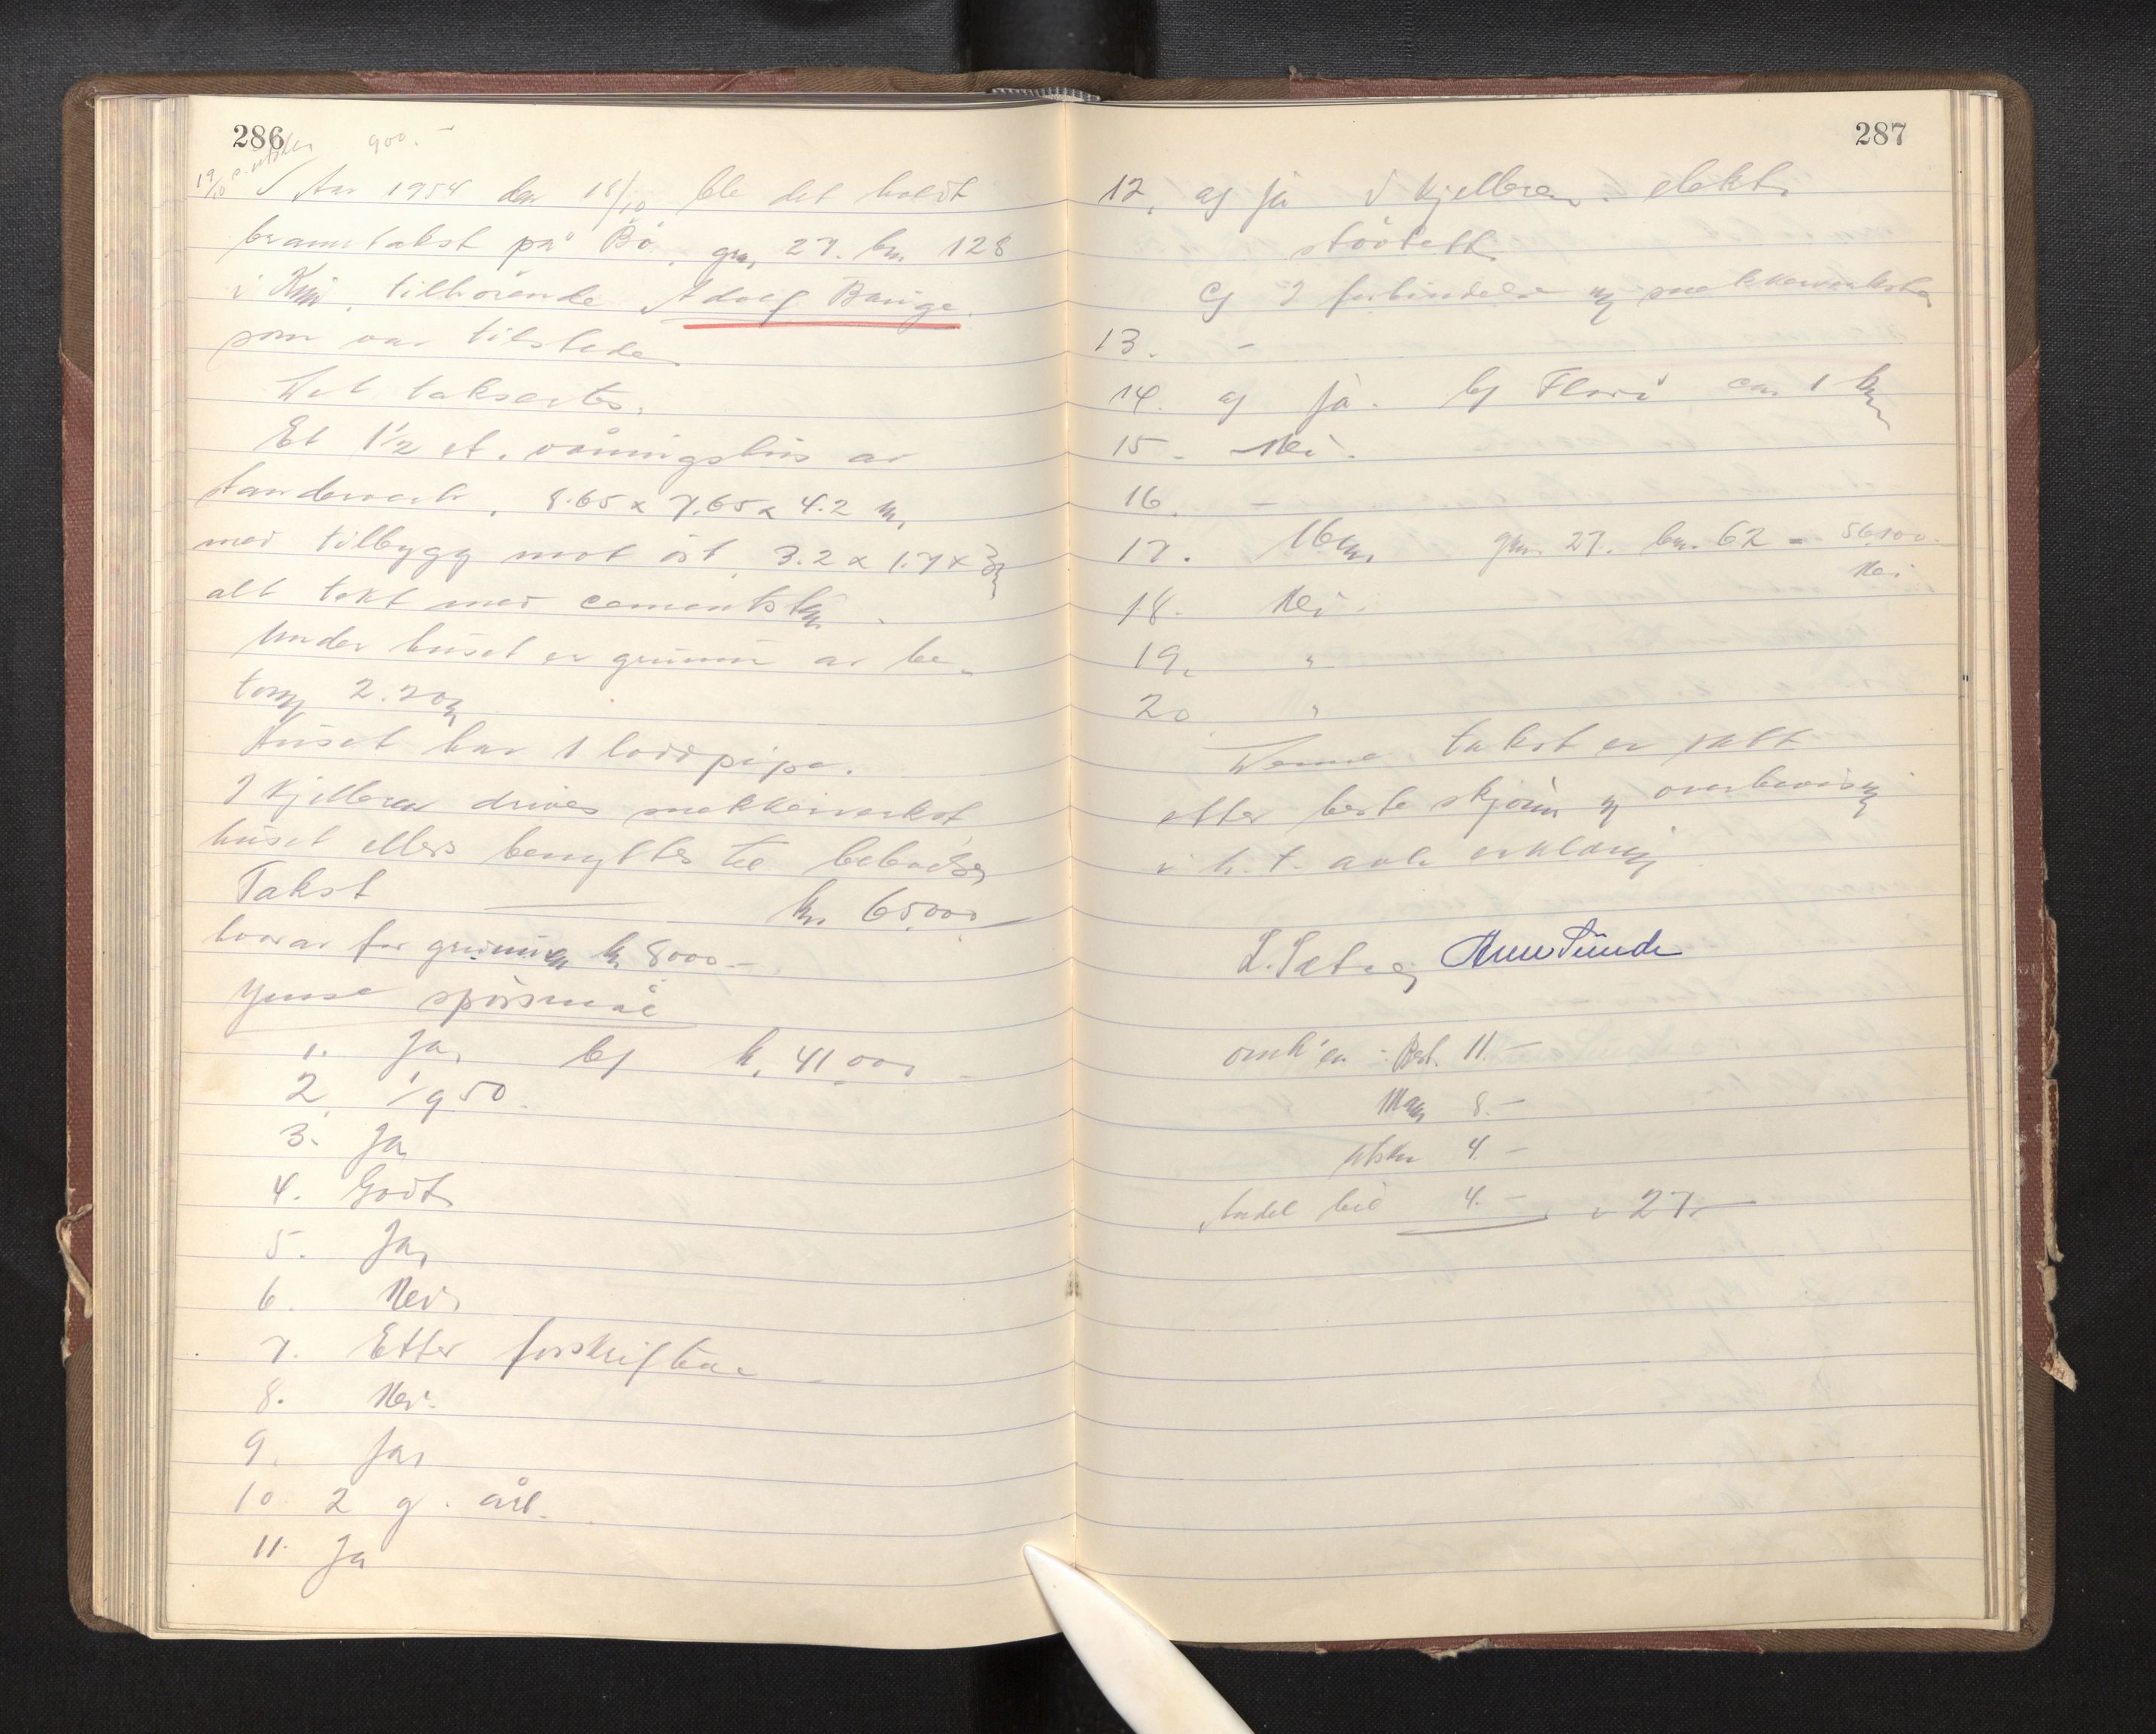 286
900.-
19/10 s. utskr.
Aar 1954 den 18/10 ble det holdt
branntakst på Bö, gn. 27. bn. 128
i Kinn, tilhörende Adolf Bauge.
som var tilstede.
Det taksertes.
Et 1 1/2 et. våningshus av
standerverk, 8.65 x 7.65 x 4.2 m,
med tilbygg mot öst, 3.2 x 1.7 x 3 m
alt tekt med cementsten.
Under huset er grunnm av be-
tong 2.20 m
Huset har 1 loddpipe.
I kjelleren drives snekkerverkst
huset ellers benyttes til beboelse
Takst kr. 65.000
hvorav for grunnm kr. 8000.-
Ymse spörsmål
1. Ja, b) kr. 41.000 -
2. 1950.
3. Ja
4. Godt
5. Ja,
6. Nei,
7. Etter forskriftene
8. Nei.
9. Ja,
10. 2 g. årl.
11. Ja
287
12. a) Ja I kjelleren. elekt.
stövtett
c) I forbindelse m snekkerverksted
13. -
14. a) Ja. b) Florö ca. 1 km
15. Nei.
16. -
17. 16 m, gn. 27. bn. 62 - 56.100.-
Nei
18. Nei.
19. "
20 "
Denne takst er satt
etter beste skjönn og overbevisning
i h. t. avl. erklæring
L. Sætre Arne Sunde
omk'en: Best. 11.-
Mann 8.-
utskr 4.-
Andel bil 4.- = 27.-